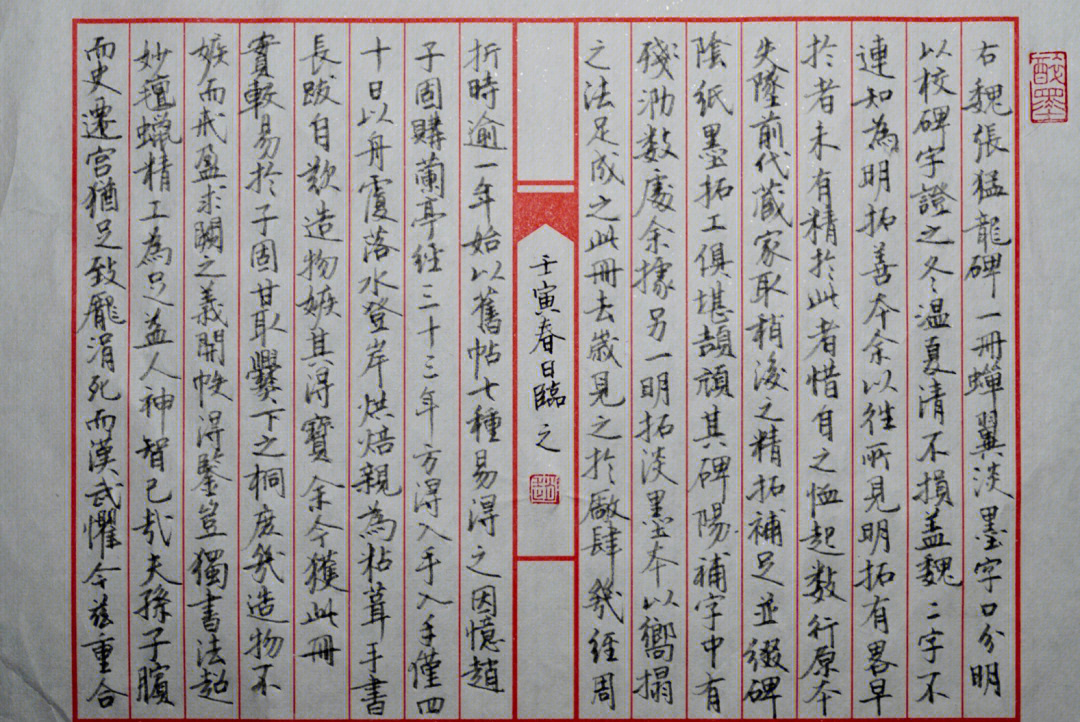 右魏張猛龍碑一冊蟬翼淡墨字口分明
以校碑字證之冬溫夏清不損蓋魏二字不
連知為明拓善本余以往所見明拓有畧早
於者未有精於此者惜自之恤起數行原本
失墜前代藏家取稍後之精拓補足並綴碑
陰紙墨拓工俱堪頡頏其碑陽補字中有
殘泐數處余據另一明拓淡墨本以嚮搨
之法足成之此冊去歲見之於廠肆幾經周
壬寅春日臨之
折時逾一年始以舊帖七種易得之因憶趙
子固購蘭亭經三十三年方得入手入手僅四
十日以舟覆落水登岸烘焙親為粘葺手書
長跋自歎造物嫉其得寶余今獲此冊
實較易於子固甘取爨下之桐庶幾造物不
嫉而戒盈求闕之義開帙得鑒豈獨書法超
妙氊蠟精工為足益人神智已哉夫孫子臏
而史遷宮猶足致龐涓死而漢武懼今茲重合
酸墨